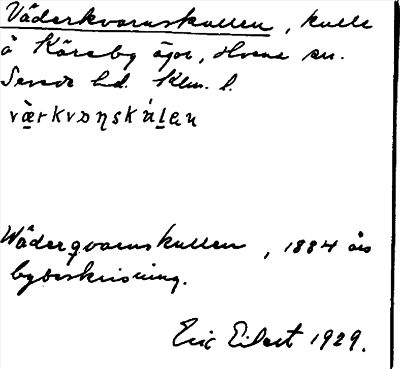 Väderkvarnskullen, kulle
å Kåreby ägor, Hvena sn.
Sevede hd. Klm. l.
vä̀rkvɔṇskúlen
Wäderqvarnskullen, 1884 års
bybeskrivning.
Eric Eilert 1929.